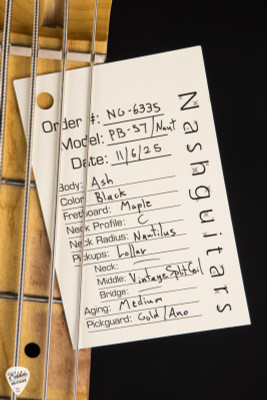 Order #: NG-6335
Model: PB-57/Naut
Date: 11/6/25
Body: Ash
Color: Black
Fretboard: Maple
Neck Profile: C
Neck Radius: Nautilus
Pickups: Lollar
Neck:
Middle: Vintage Split Coil
Bridge:
Aging: Medium
Pickguard: Gold/Ano
Nashguitars